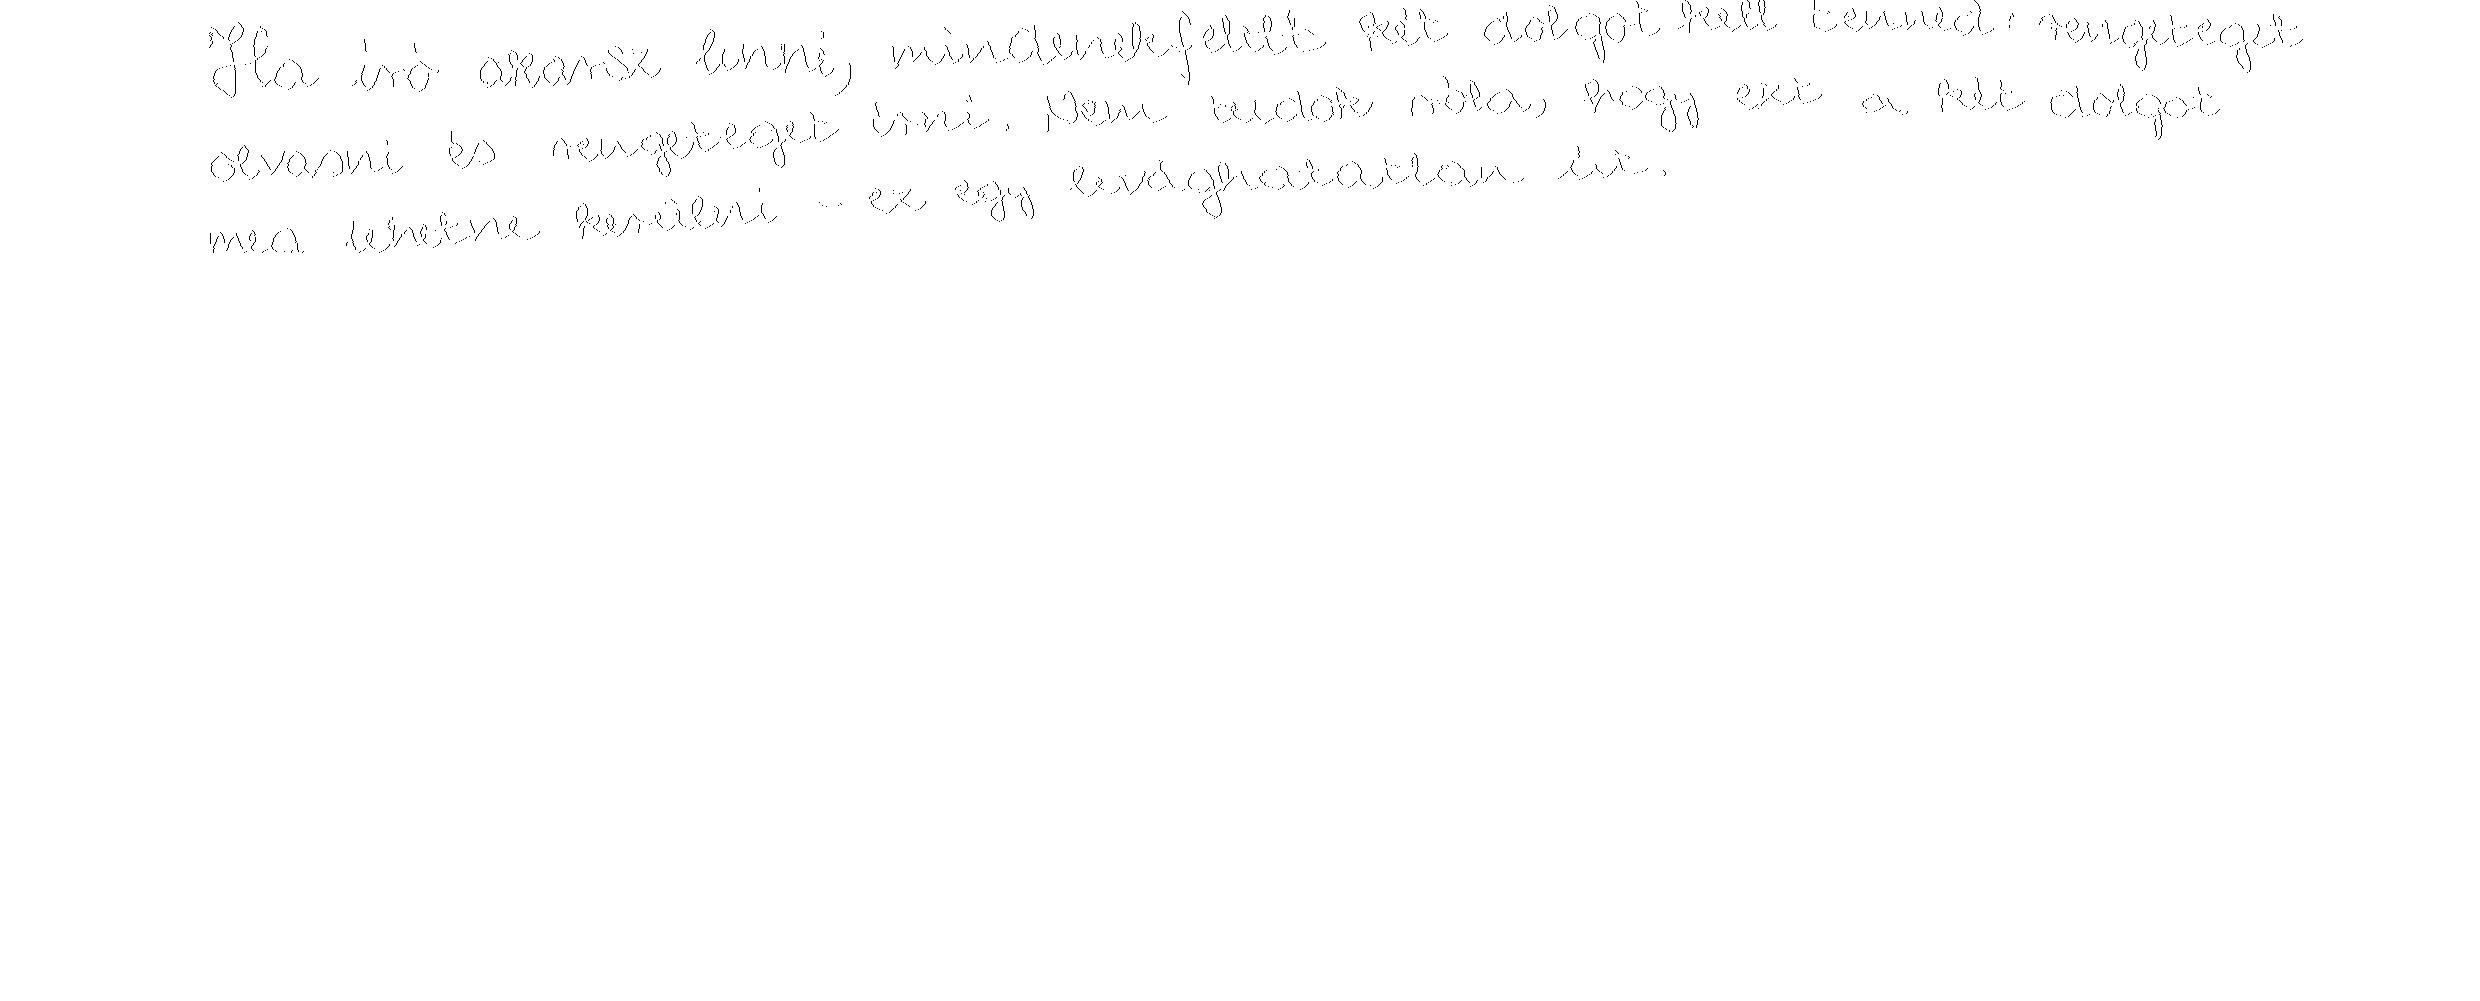 Ha író akarsz lenni, mindenekfelett két dolgot kell tenned: rengeteget
olvasni és rengeteget írni. Nem tudok róla, hogy ezt a két dolgot
meg lehetne kerülni - ez egy levághatatlan út.